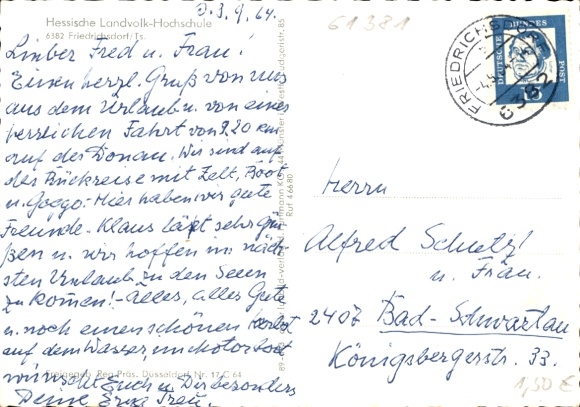 Hessische Landvolk-Hochschule
6382 Friedrichsdorf/Ts.
D. 3.9.64.
61381
Lieber Fred u. Frau!
Einen herzl. Gruß von uns
aus dem Urlaub u. von einer
herrlichen Fahrt von 920 km
auf der Donau. Wir sind auf
der Rückreise mit Zelt, Boot
u. Goggo. Hier haben wir gute
Freunde. Klaus läßt sehr grü-
ßen u. wir hoffen im näch-
sten Urlaub zu den Seen
zu kommen! - Alles, alles Gute
u. noch einen schönen Herbst
auf dem Wasser, im Motorboot
wünscht Euch u. Dir besonders
Deine Erna Freu.
Freigegeb. Reg. Präs. Düsseldorf Nr. 17 C 64
Ruf 46680
FRIEDRICHSDORF
6382
DEUTSCHE BUNDESPOST
15
Herrn
Alfred Schulz
u. Frau.
2407 Bad-Schwartau
Königsbergerstr. 33.
1,50 €